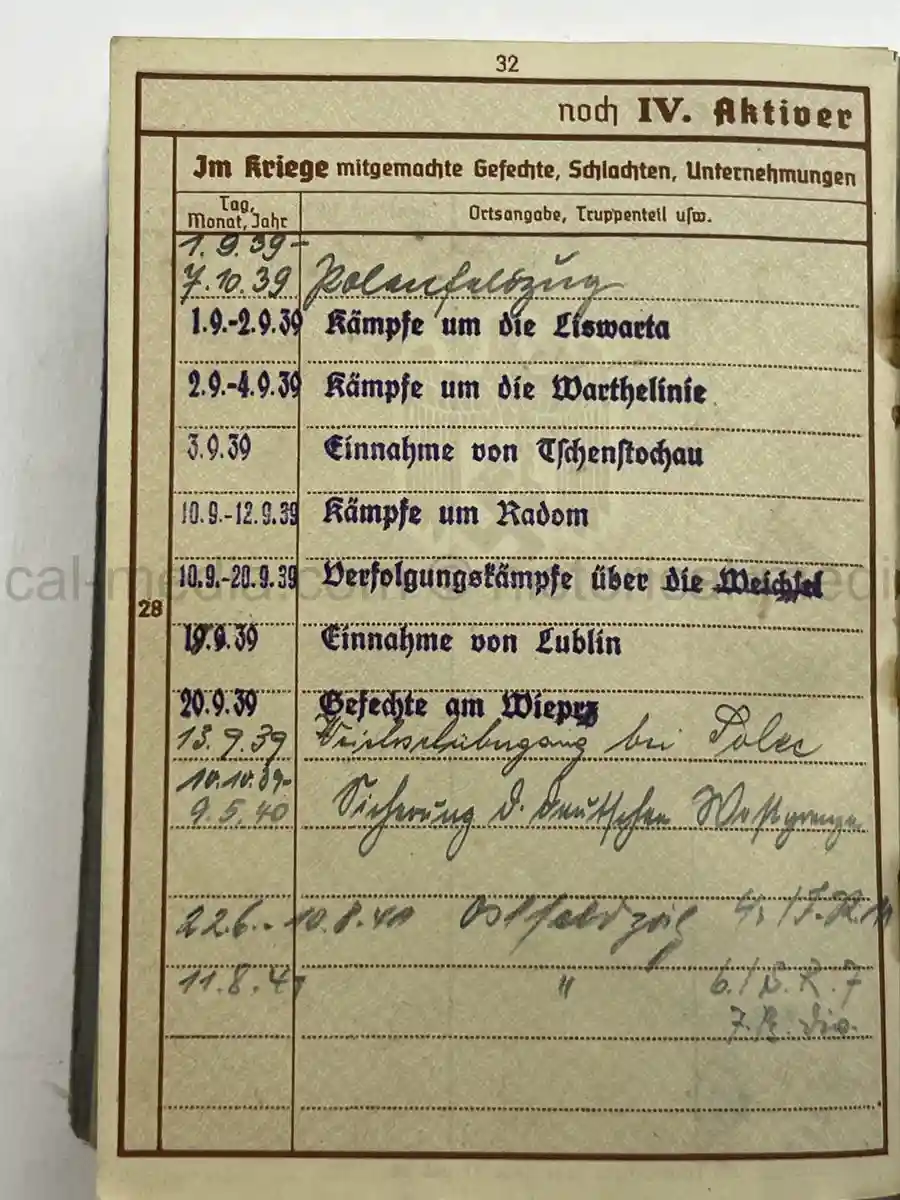 32
noch IV. Aktiver
Im Kriege mitgemachte Gefechte, Schlachten, Unternehmungen
Tag, Monat, Jahr
Ortsangabe, Truppenteil usw.
1.9.39-
7.10.39 Polenfelszug
1.9.-2.9.39 Kämpfe um die Liswarta
2.9.-4.9.39 Kämpfe um die Warthelinie
3.9.39 Einnahme von Tschenstochau
10.9.-12.9.39 Kämpfe um Radom
10.9.-20.9.39 Verfolgungskämpfe über die Weichsel
28
19.9.39 Einnahme von Lublin
20.9.39 Gefechte am Wieprz
13.9.39 bei Solec
10.10.39-
9.5.40 Sicherung d. deutschen Westgrenze
22.6.-10.8.41 Ostfeldzug /J.R.
11.8.41 " 6./